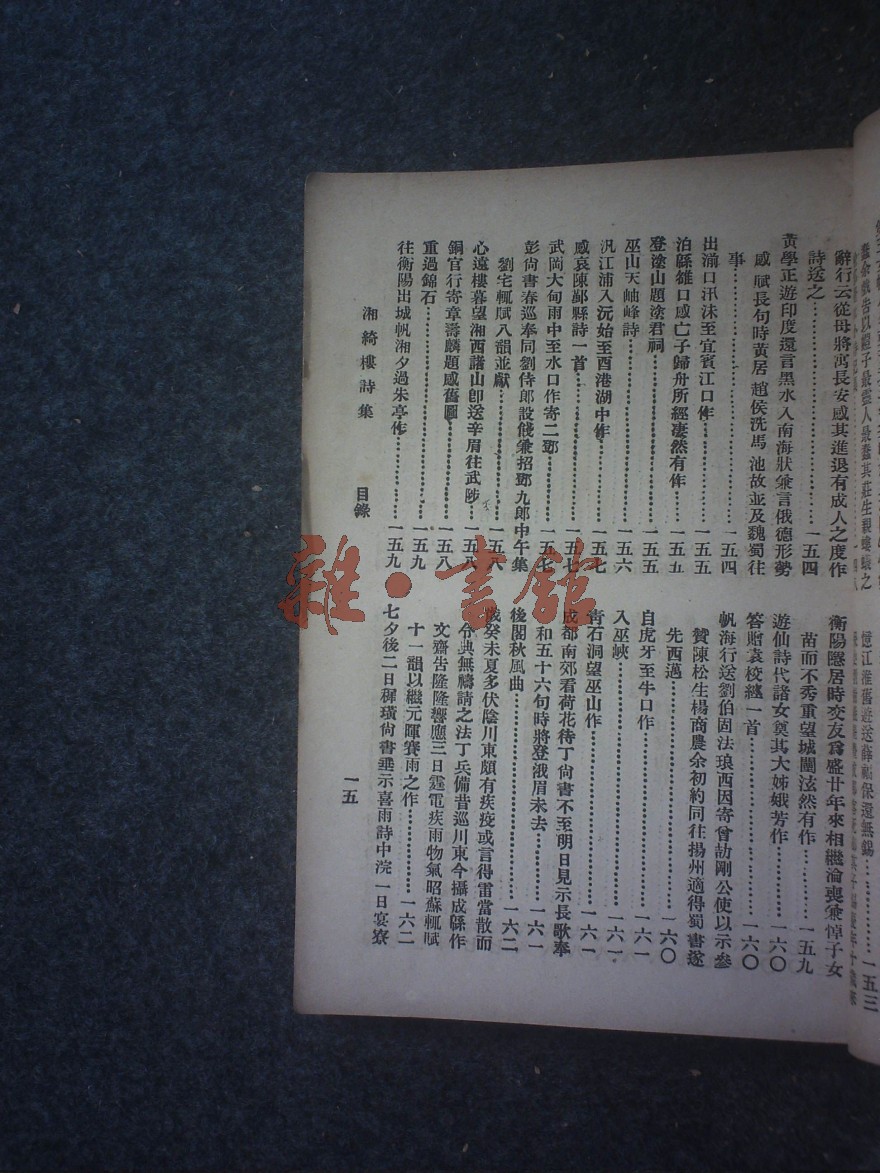 辭行云從母將寓長安感其進退有成人之度作
詩送之…………一五四
黃學正遊印度還言黑水入南海狀兼言俄德形勢
感賦長句時黃居趙侯洗馬池故並及魏蜀往
事…………一五四
出湔口汎沫至宜賓江口作…………一五五
泊縣雒口感亡子歸舟所經凄然有作…………一五五
登塗山題塗君祠…………一五五
巫山天岫峰詩…………一五六
汎江浦入沅始至酉港湖中作…………一五七
感哀陳鄢縣詩一首…………一五七
武岡大甸雨中至水口作寄二鄧…………一五七
彭尙書春巡奉同劉侍郎設餞兼招鄧九郎中午集
劉宅輒賦八韻並獻…………一五八
心遠樓暮望湘西諸山卽送辛眉往武陟…………一五八
銅官行寄章壽麟題感舊圖…………一五八
重過錦石…………一五九
往衡陽出城帆湘夕過朱亭作…………一五九
衡陽隱居時交友爲盛廿年來相繼淪喪兼悼子女
苗而不秀重望城闉泫然有作…………一五九
遊仙詩代諸女奠其大姊娥芳作…………一六〇
答贈袁校一首…………一六〇
帆海行送劉伯固法琅西因寄曾劼剛公使以示參
贊陳松生楊商農余初約同往揚州適得蜀書遂
先西邁…………一六〇
自虎牙至牛口作…………一六一
入巫峽…………一六一
靑石洞望巫山作…………一六一
成都南郊看荷花待丁尙書不至明日見示長歌奉
和五十六句時將登峨眉未去…………一六一
後閣秋風曲…………一六二
癸未夏多伏陰川東頗有疾疫或言得雷當散而
令典無禱請之法丁兵備昔巡川東今攝成緜作
文齋告隆隆響應三日霆電疾雨物氣昭蘇輒賦
十一韻以繼元暉賽雨之作…………一六二
七夕後二日穉璜尙書垂示喜雨詩中浣一日宴寮
湘綺樓詩集 目錄 一五
憶江淮舊遊送薛福保還無錫…………一五三
雜·書館